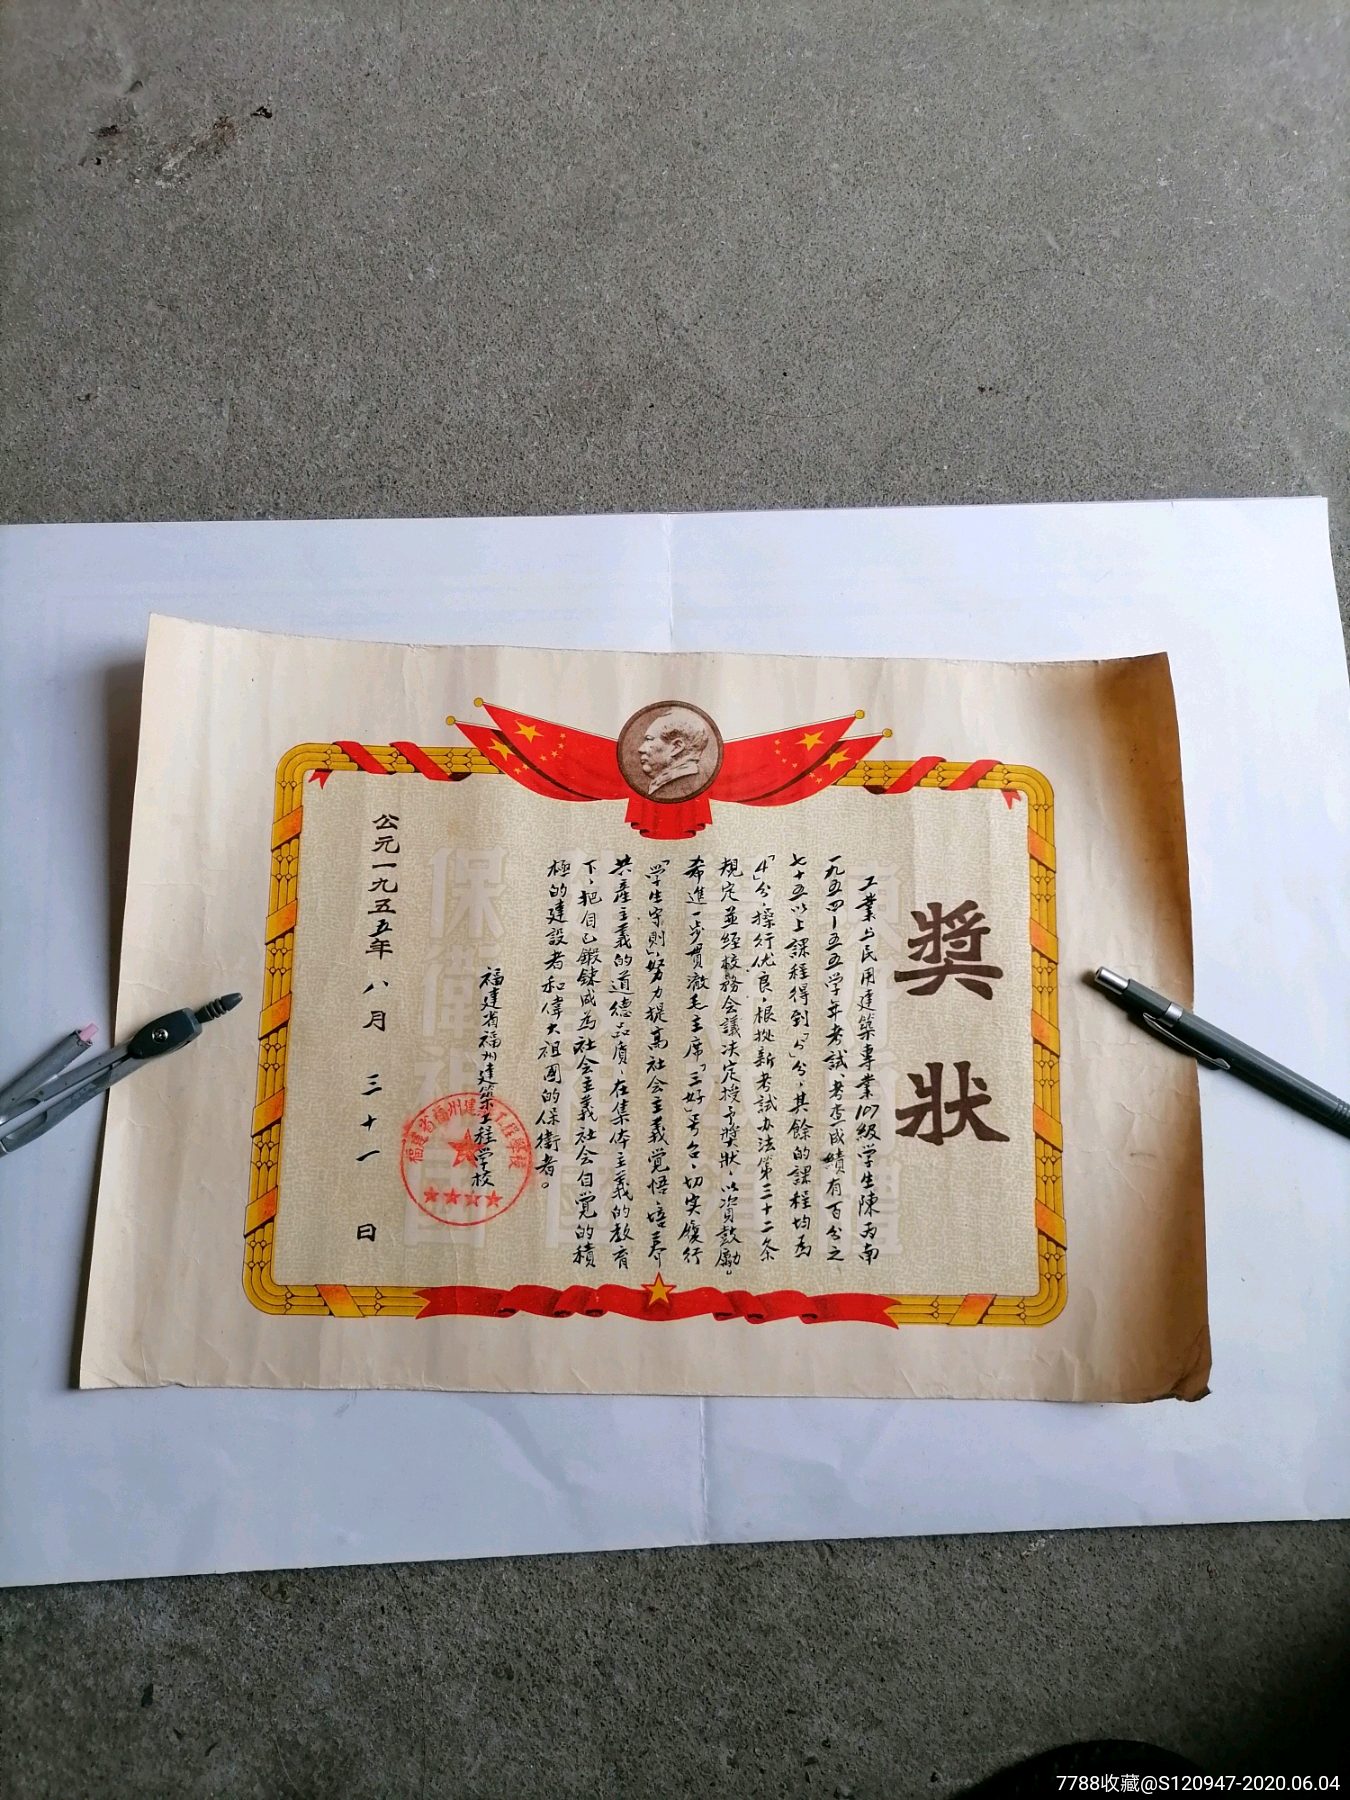 獎狀
工業与民用建築專業107級学生陳丙南
一九五四—五五学年考試、考查成績有百分之
七十五以上課程得到「5」分，其餘的課程均為
「4」分，操行优良，根拠新考試办法第三十二条
規定並経校務会議决定授予獎狀，以資鼓勵。
希進一步貫澈毛主席「三好」号召，切实履行
「学生守則」努力提高社会主義覚悟，培养
共產主義的道德品質，在集体主義的教育
下，把自己鍛鍊成為社会主義社会自覚的積
極的建設者和偉大祖國的保衛者。
福建省福州建築工程学校
福建省福州建築工程學校
公元一九五五年八月三十一日
保衛祖國
7788收藏@S120947-2020.06.04